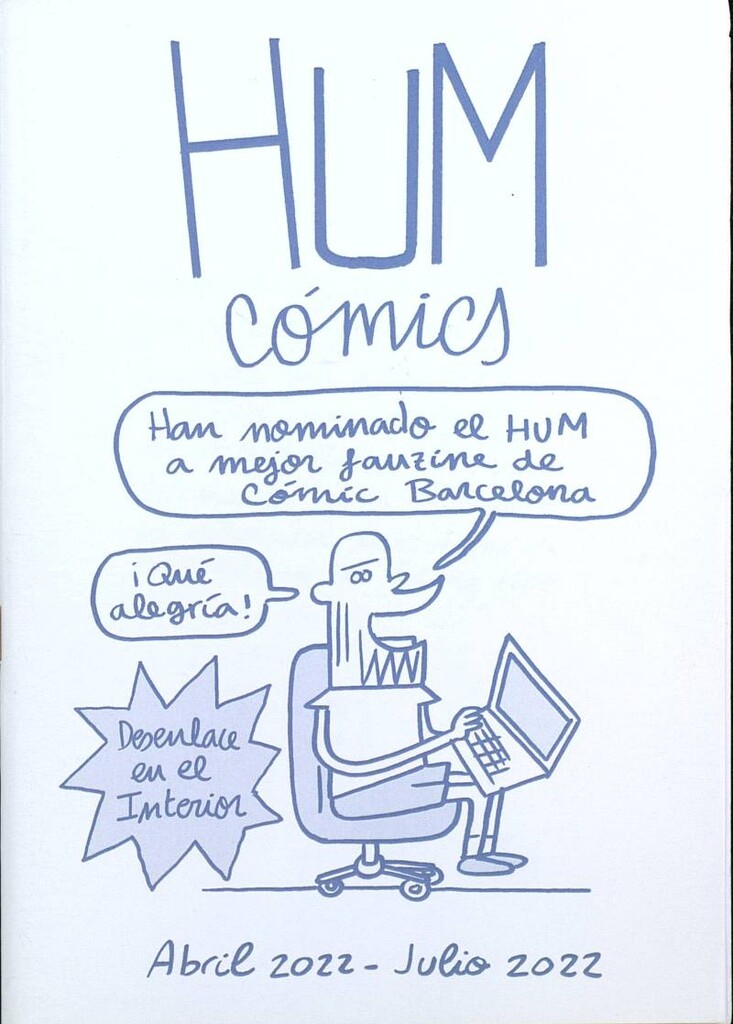 HUM
cómics
Han nominado el HUM
a mejor fanzine de
Cómic Barcelona
¡Qué
alegría!
Desenlace
en el
Interior
Abril 2022 - Julio 2022